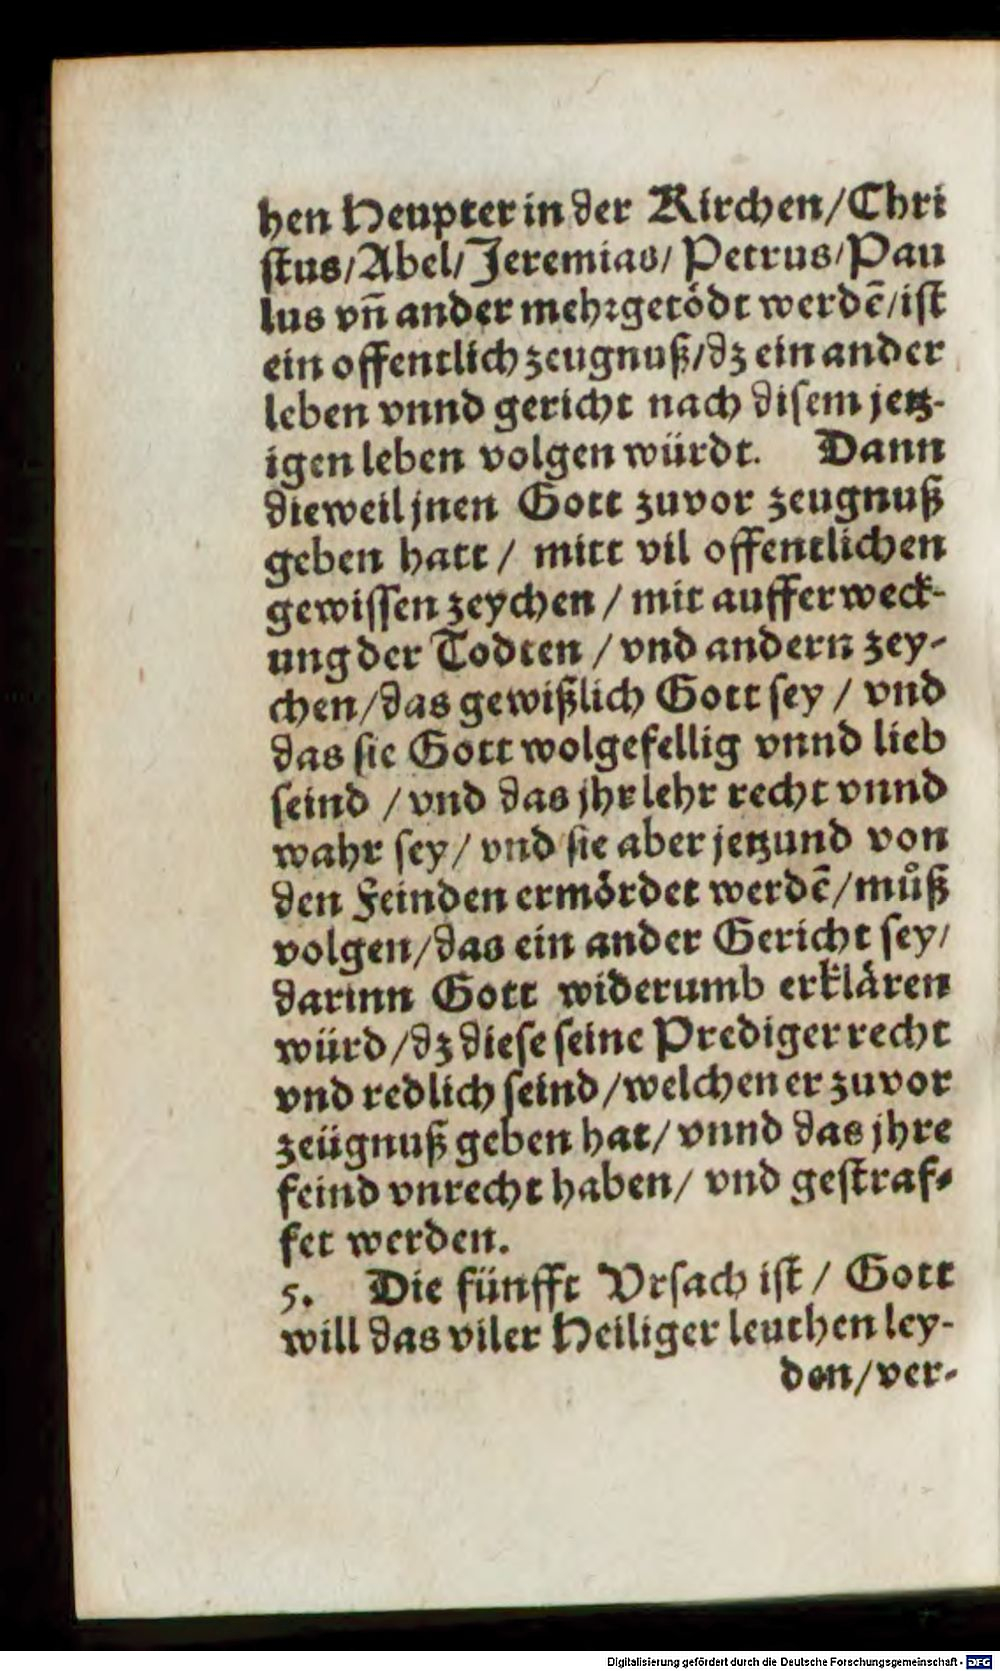 hen Heupter in der Kirchen/Chri
stus/Abel/Jeremias/Petrus/Pau
lus vn̄ ander mehr getödt werdē/ist
ein offentlich zeugnuß/dz ein ander
leben vnnd gericht nach disem jetz-
igen leben volgen würdt. Dann
dieweil jnen Gott zuvor zeugnuß
geben hatt / mitt vil offentlichen
gewissen zeychen / mit aufferweck-
ung der Todten / vnd andern zey-
chen/das gewißlich Gott sey / vnd
das sie Gott wolgefellig vnnd lieb
seind / vnd das jhr lehr recht vnnd
wahr sey/ vnd sie aber jetzund von
den Feinden ermördet werdē/můß
volgen/das ein ander Gericht sey/
darinn Gott widerumb erklären
würd/dz diese seine Prediger recht
vnd redlich seind/welchen er zuvor
zeügnuß geben hat/ vnnd das jhre
feind vnrecht haben/ vnd gestraf-
fet werden.
5. Die fünfft Vrsach ist / Gott
will das viler Heiliger leuthen ley-
den/ver-
Digitalisierung gefördert durch die Deutsche Forschungsgemeinschaft - DFG